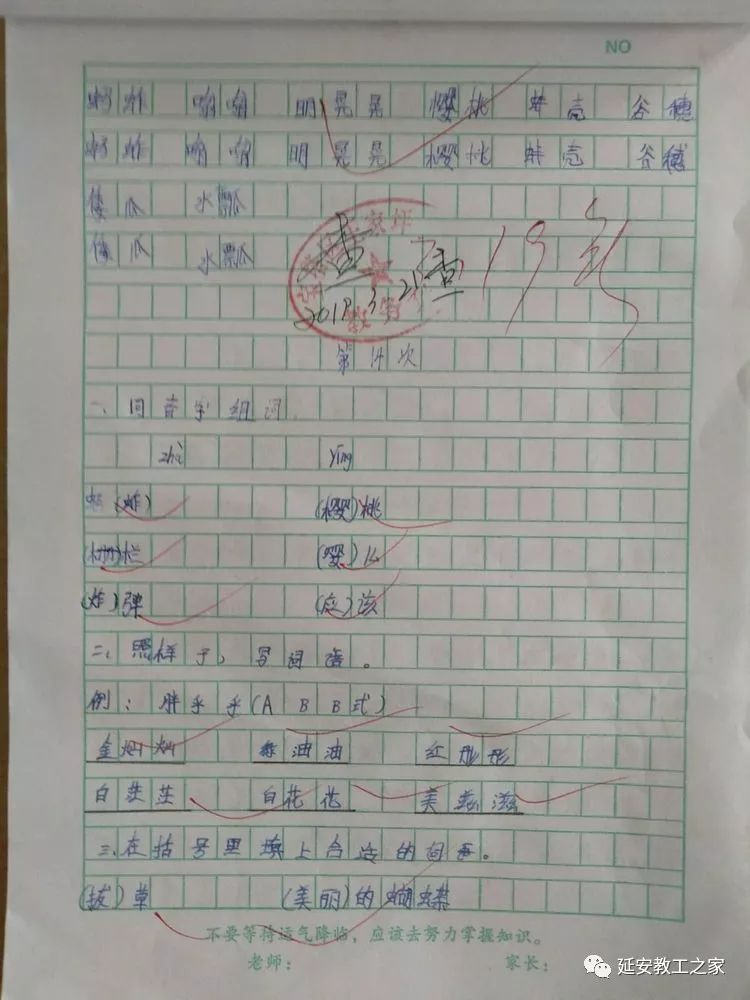 NO
蚂蚱 啪啪 明晃晃 樱桃 蚌壳 谷穗
蚂蚱 啪啪 明晃晃 樱桃 蚌壳 谷穗
傻瓜 水瓢
傻瓜 水瓢
查 查 19号
2018.3.21
教务
第14次
一、同音字组词.
zhà yīng
蚂(蚱) (樱)桃
(栅)栏 (婴)儿
(炸)弹 (应)该
二、照样子,写词语。
例:胖乎乎(ABB式)
金灿灿 绿油油 红彤彤
白茫茫 白花花 美滋滋
三、在括号里填上合适的词语。
(拔)草 (美丽)的蝴蝶
不要等待运气降临,应该去努力掌握知识。
老师: 家长:
延安教工之家